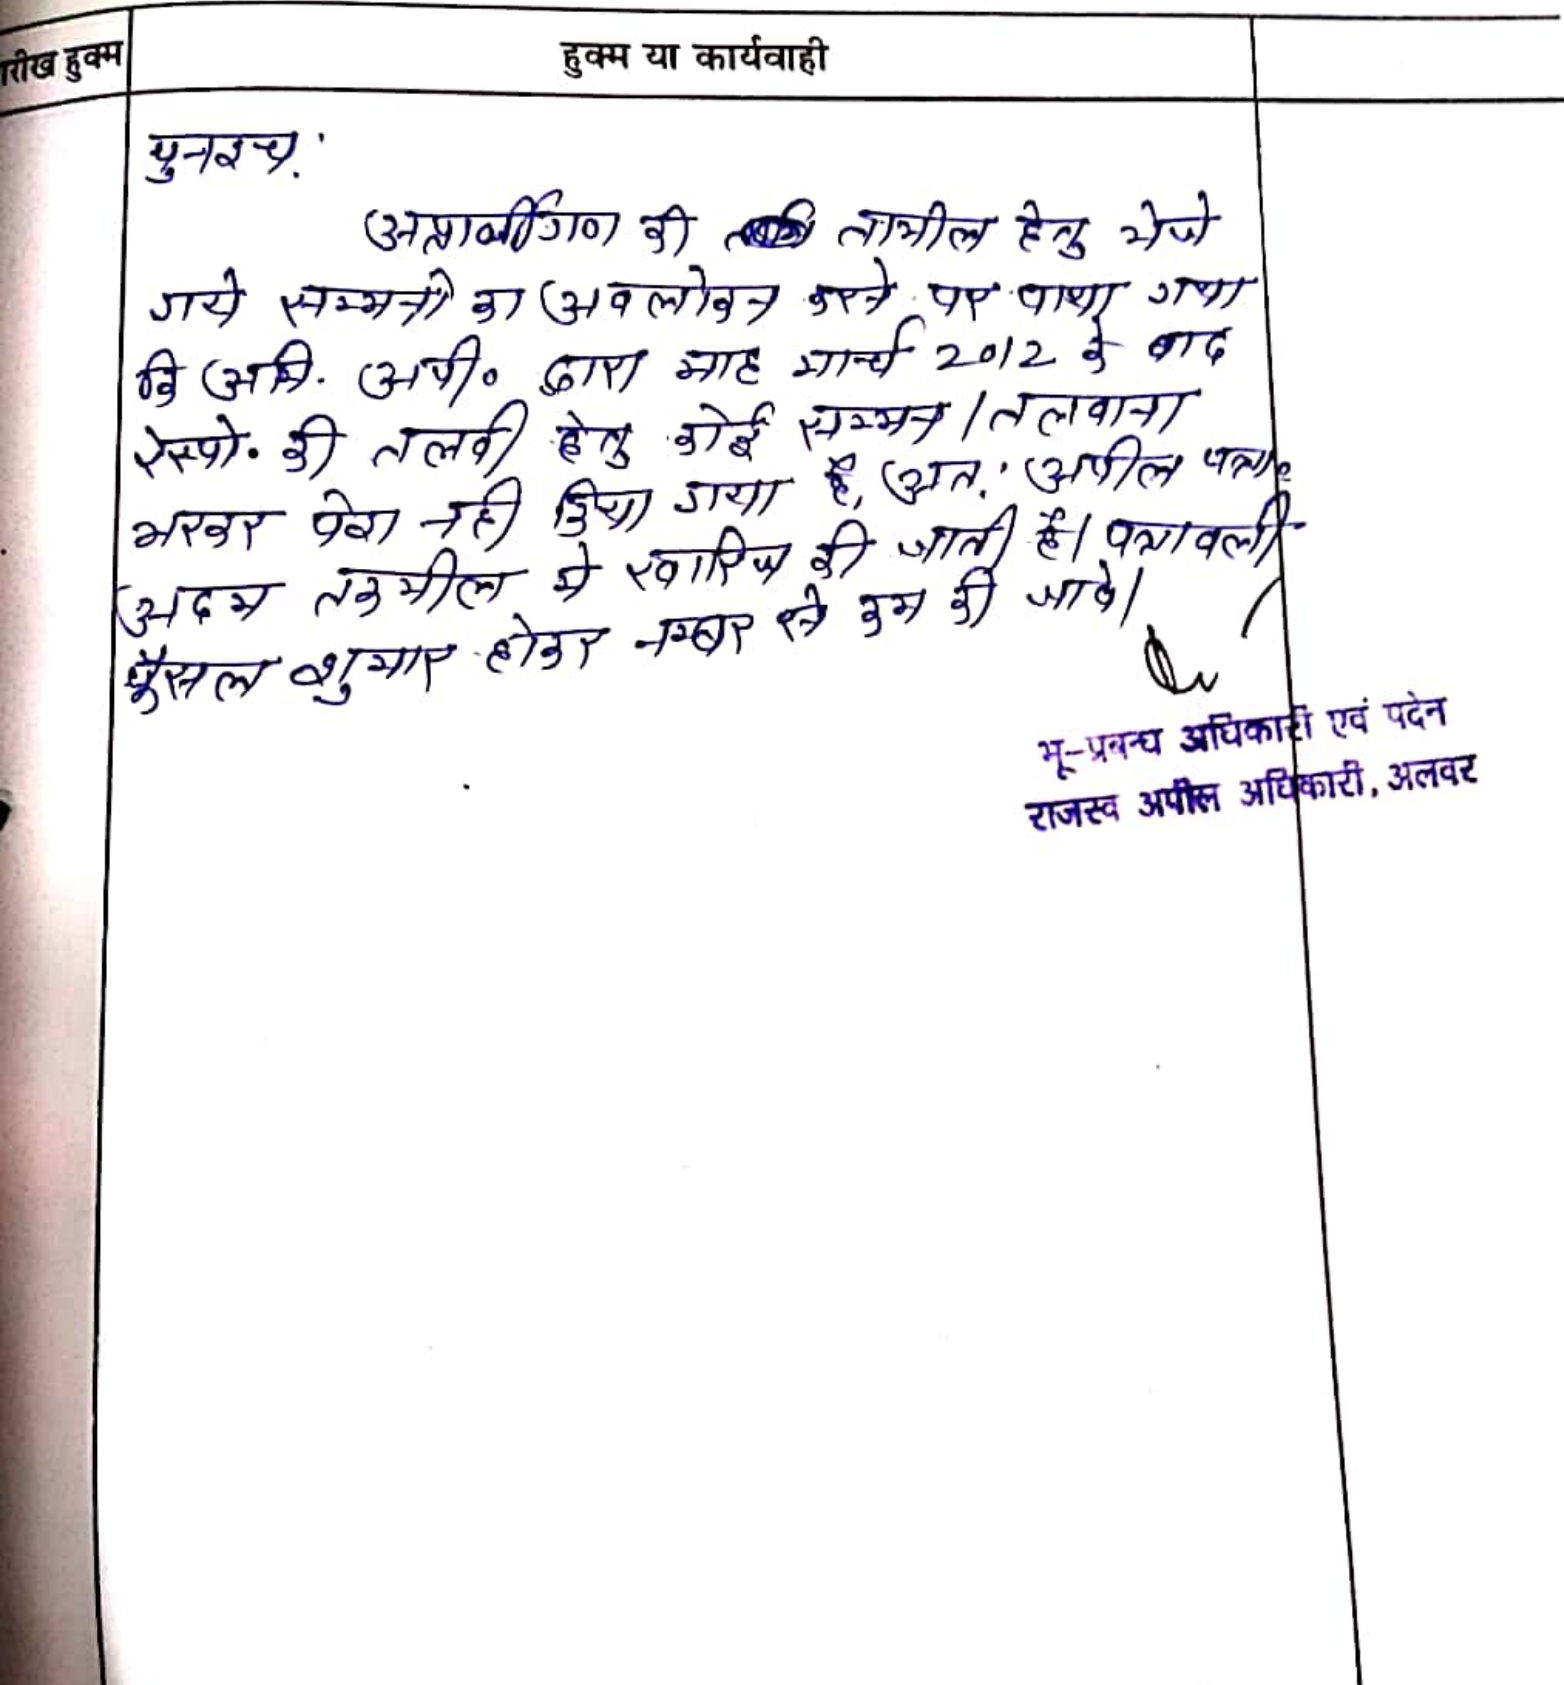 रीख हुक्म
हुक्म या कार्यवाही
पुनश्च:
की तामील हेतु भेजे
गये सम्मनो का अवलोकन करने पर पाया गया
कि अभि. अपी० द्वारा माह मार्च 2012 के बाद
रेस्पो. की तलवी हेतु कोई सम्मन/तलवाना
भरकर पेश नही किया गया है, अत: अपील पत्रा०
अदम तकमील मे खारिज की जाती है। पत्रावली
फैसल शुमार होकर नम्बर से कम की जावे।
भू-प्रबन्ध अधिकारी एवं पदेन
राजस्व अपील अधिकारी, अलवर